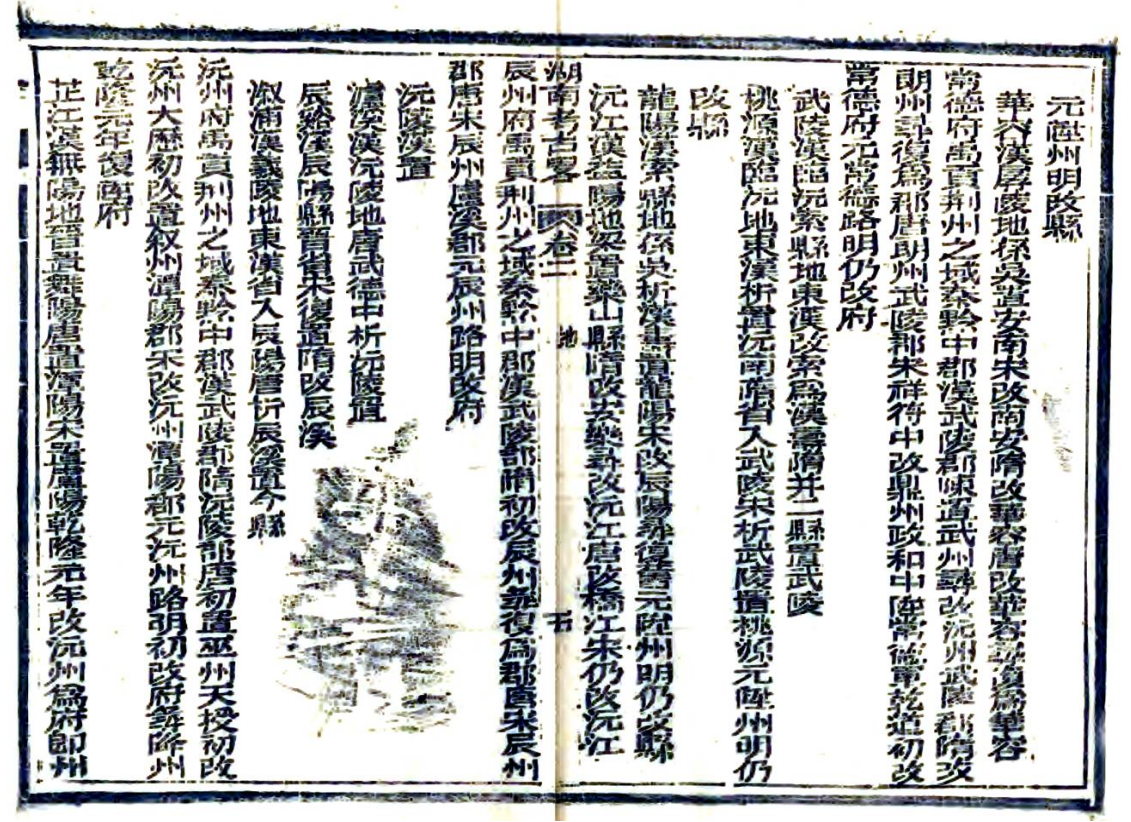 元陞州明改縣
華容漢孱陵地係吳置安南宋改南安隋改華容唐改華容尋復爲華容
常德府禹貢荆州之域秦黔中郡漢武陵郡陳置武州尋改沅州武陵郡隋改
朗州尋復爲郡唐朗州武陵郡宋祥符中改鼎州政和中陞常德軍乾道初改
常德府元常德路明仍改府
武陵漢臨沅索縣地東漢改索爲漢壽隋并二縣置武陵
桃源漢臨沅地東漢析置沅南隋省入武陵宋析武陵置桃源元陞州明仍
改縣
龍陽漢索縣地係吳析漢壽置龍陽宋改辰陽尋復舊元陞州明仍改縣
沅江漢益陽地梁置藥山縣隋改安樂尋改沅江唐改橋江宋仍改沅江
湖南考古畧 卷二 地 五
辰州府禹貢荆州之域秦黔中郡漢武陵郡隋初改辰州尋復爲郡唐宋辰州
郡唐宋辰州盧溪郡元辰州路明改府
沅陵漢置
瀘溪漢沅陵地唐武德中析沅陵置
辰谿漢辰陽縣晉省宋復置隋改辰溪
溆浦漢義陵地東漢省入辰陽唐析辰溪置今縣
沅州府禹貢荆州之域秦黔中郡漢武陵郡隋沅陵郡唐初置巫州天授初改
沅州大歷初改置叙州潭陽郡宋改沅州潭陽郡元沅州路明初改府尋降州
乾隆元年復陞府
芷江漢無陽地晉置舞陽唐置潭陽宋置盧陽乾隆元年改沅州爲府卽州